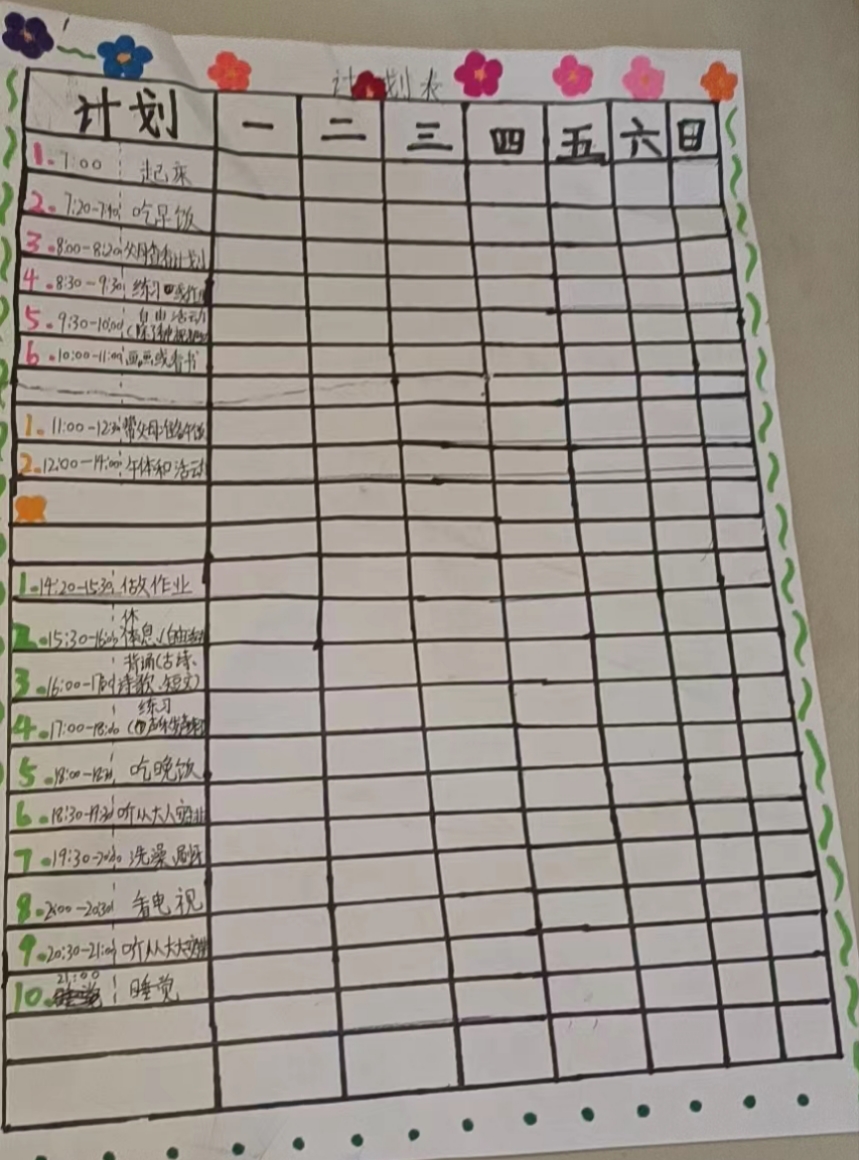 计划表
计划 一 二 三 四 五 六 日
1. 7:00 起床
2. 7:20-7:40 吃早饭
3. 8:00-8:20 父母查看计划
4. 8:30-9:30 练习
5. 9:30-10:00 自由活动
(除了
6. 10:00-11:00 画画或看书
1. 11:00-12:30 帮父母准备午饭
2. 12:00-14:00 午休和活动
1. 14:20-15:30 做作业
休
2. 15:30-16:00 休息
背诵(古诗、
3. 16:00-17:00 诗歌、短文)
练习
4. 17:00-18:00
5. 18:00-18:30 吃晚饭
6. 18:30-19:30 听从大人安排
7. 19:30-20:00 洗澡、刷牙
8. 20:00-20:30 看电视
9. 20:30-21:00 听从大人安排
21:00
10. 睡觉